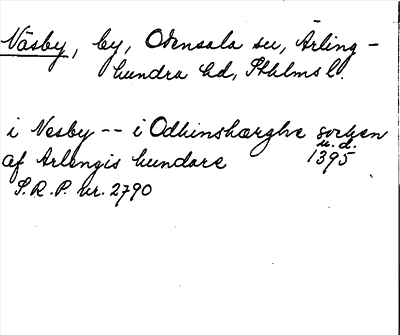 Näsby, by, Odensala sn, Ärling-
hundra hd, Sthlms l.
i Nesby -- i Odhinshærghe sorken
af Ærlengis hundare
u.d.
1395
S.R.P. nr. 2790